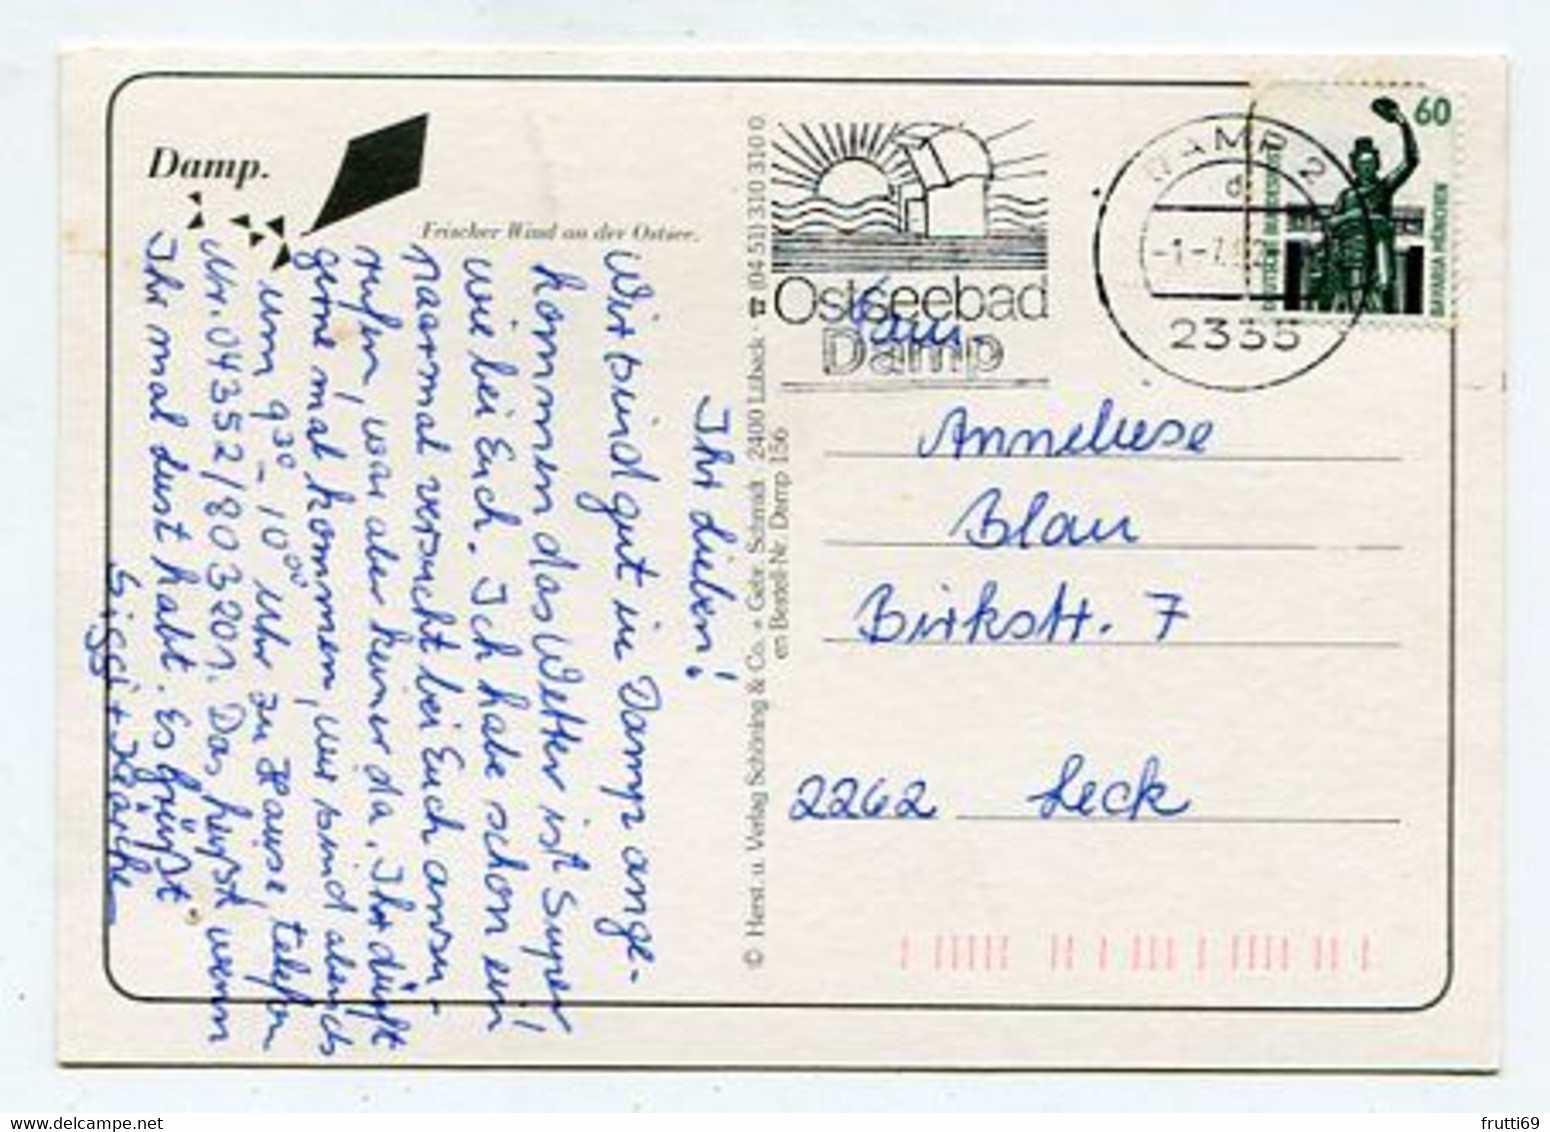 Damp.
Frischer Wind an der Ostsee.
Ihr lieben!
Wir sind gut in Damp ange-
kommen das Wetter ist Super
wie bei Euch. Ich habe schon ein
paarmal versucht bei Euch anzu-
rufen, war aber keiner da. Ihr dürft
gerne mal kommen, wir sind abends
um 9³⁰ - 10⁰⁰ Uhr zu Hause, telefon
Nr. 04352/803201. Das heißt wenn
Ihr mal lust habt. Es grüßt
Siggi +
© Herst. u. Verlag Schöning & Co. + Gebr. Schmidt · 2400 Lübeck · ☎ (04 51) 310 310 0
en Bestell-Nr. Damp 156
Ostseebad
Damp
DAMP 2
d
-1-7.
2335
60
DEUTSCHE BUNDESPOST
BAVARIA MÜNCHEN
Fam.
Anneliese
Blau
Birkstr. 7
2262 Leck
frutti69